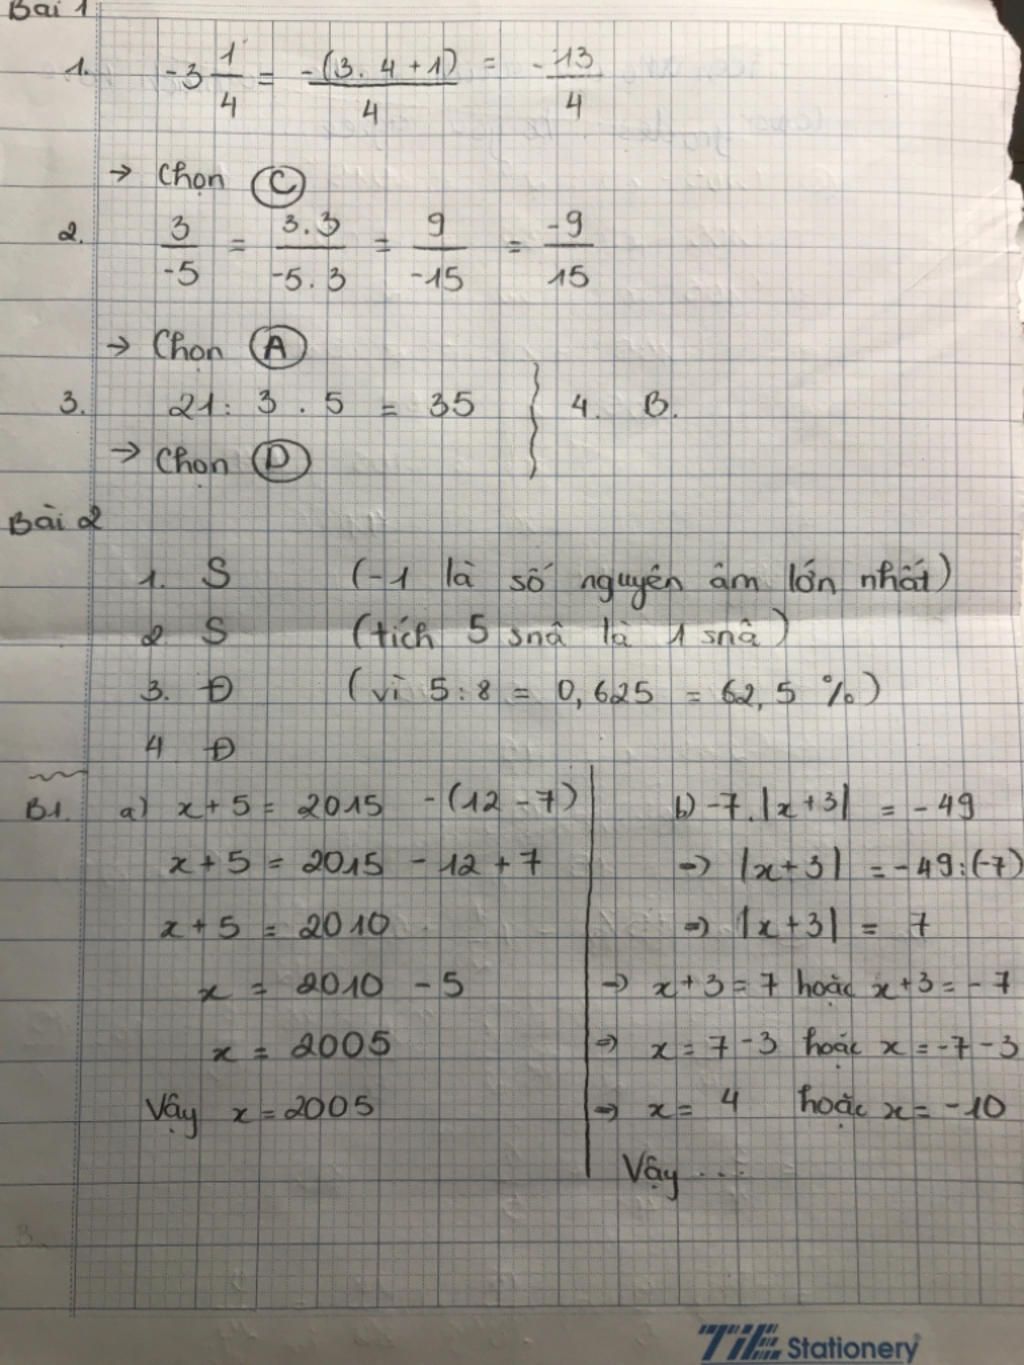 Bài 1
1. -3 1/4 = -(3.4+1)/4 = -13/4
→ Chọn C
2. 3/-5 = 3.3/-5.3 = 9/-15 = -9/15
→ Chọn A
3. 21 : 3 . 5 = 35
→ Chọn D
4. B.
Bài 2
1. S (-1 là số nguyên âm lớn nhất)
2 S (tích 5 snâ là 1 snâ)
3. Đ (vì 5 : 8 = 0,625 = 62,5 %)
4 Đ
B1. a) x + 5 = 2015 - (12 - 7)
x + 5 = 2015 - 12 + 7
x + 5 = 2010
x = 2010 - 5
x = 2005
Vậy x = 2005
b) -7.|x+3| = -49
=> |x+3| = -49:(-7)
=> |x+3| = 7
=> x+3 = 7 hoặc x+3 = -7
=> x = 7-3 hoặc x = -7-3
=> x = 4 hoặc x = -10
Vậy ....
TiE Stationery